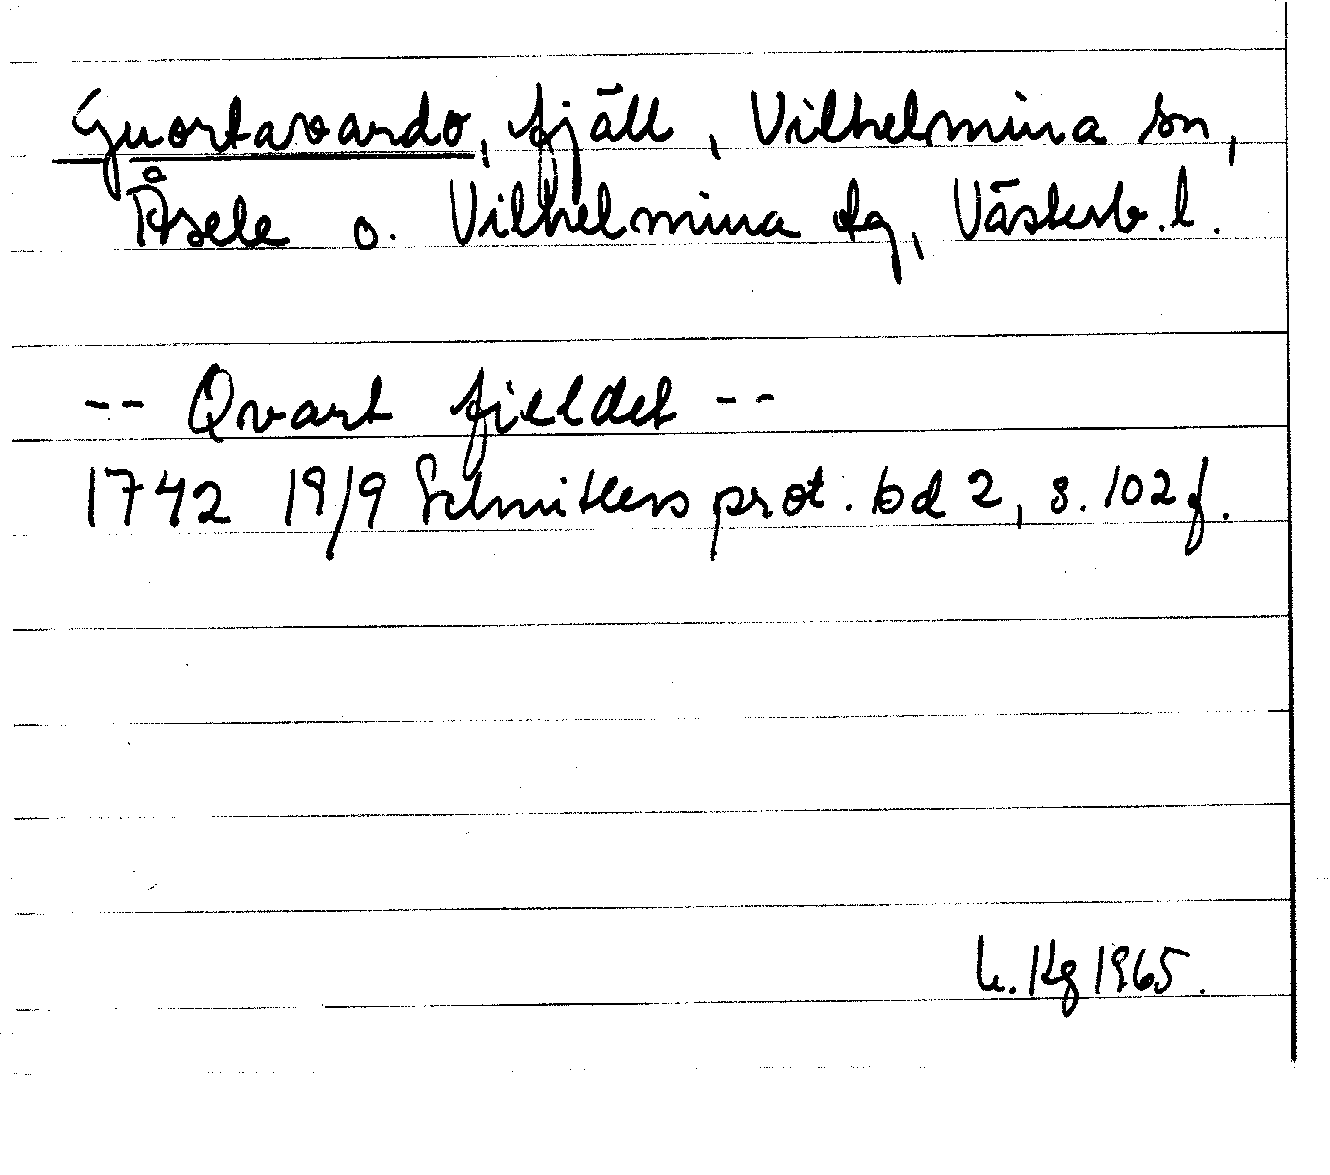 Guortavardo, fjäll, Vilhelmina sn,
Åsele o. Vilhelmina tg, Västerb. l.
-- Qvart fieldet --
1742 19/9 Schnitlers prot. bd 2, s. 102 f.
Kg 1965.